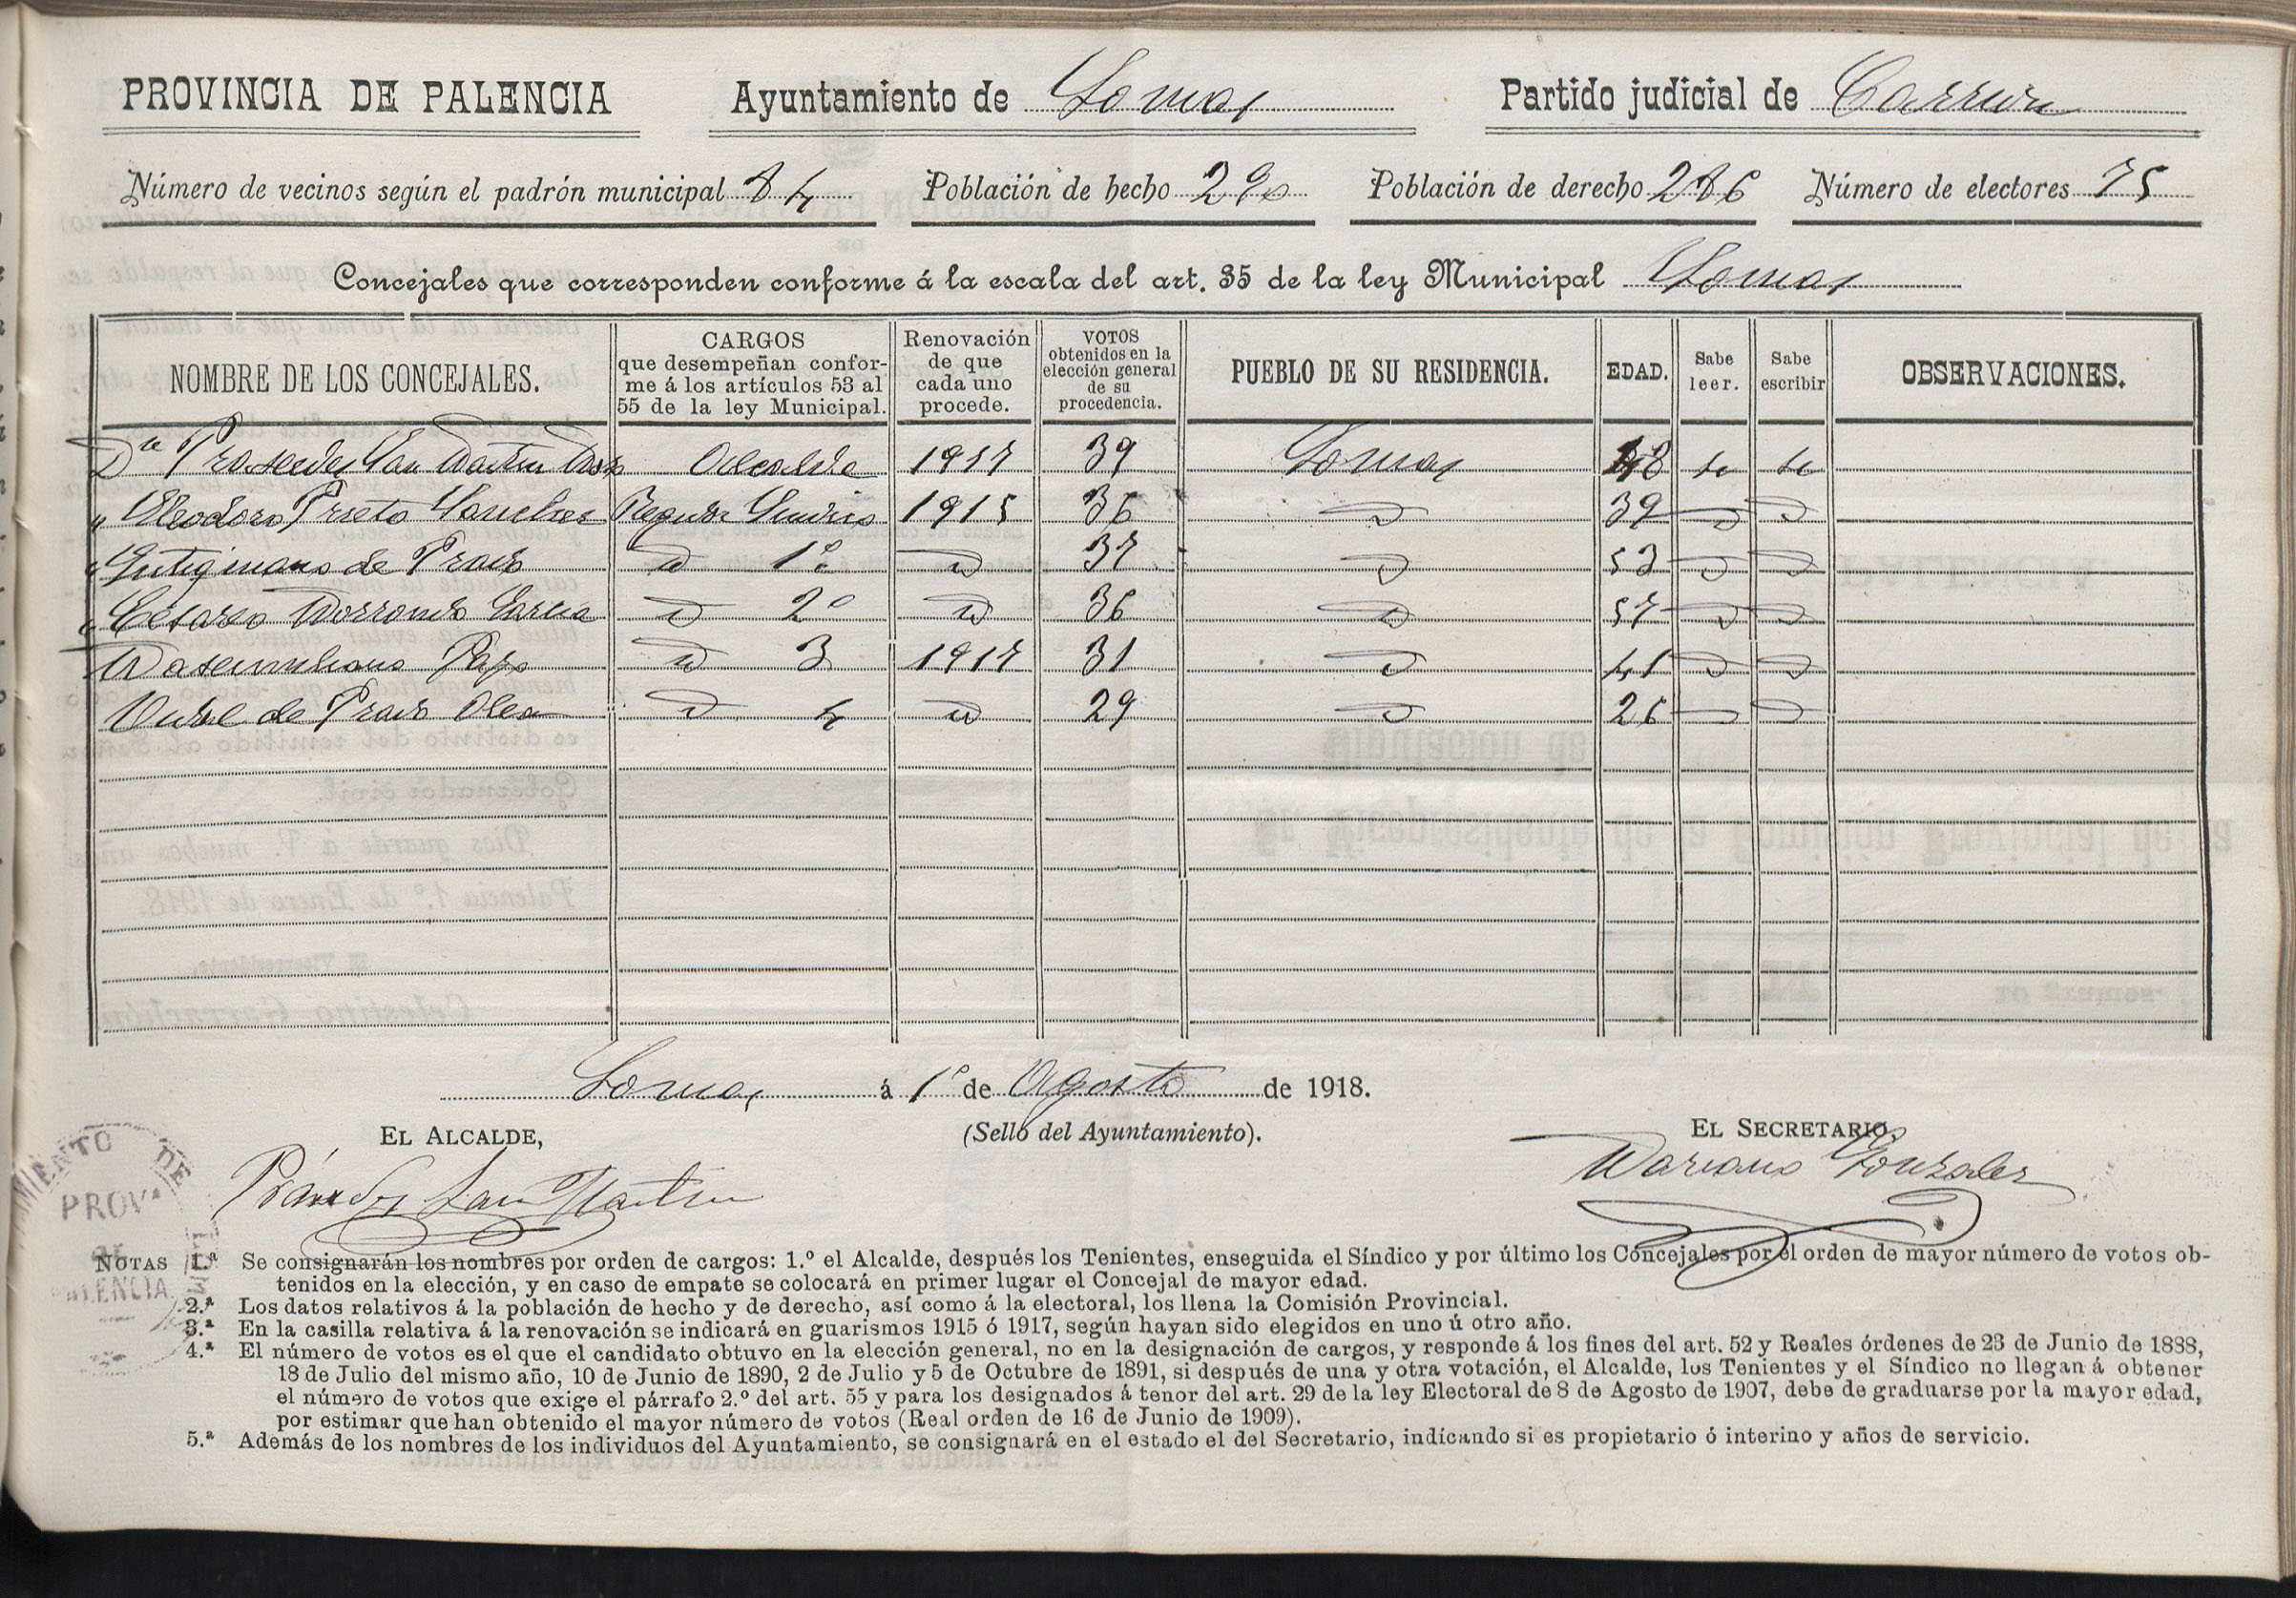 PROVINCIA DE PALENCIA Ayuntamiento de Lomas Partido judicial de Carrion
Número de vecinos según el padrón municipal 84 Población de hecho 290 Población de derecho 286 Número de electores 75
Concejales que corresponden conforme á la escala del art. 35 de la ley Municipal Lomas
NOMBRE DE LOS CONCEJALES. CARGOS que desempeñan conforme á los artículos 53 al 55 de la ley Municipal. Renovación de que cada uno procede. VOTOS obtenidos en la elección general de su procedencia. PUEBLO DE SU RESIDENCIA. EDAD. Sabe leer. Sabe escribir OBSERVACIONES.
San Martin Alcalde 1917 39 Lomas 48 si si
" Eleodoro Prieto Sanchez Regidor Sindico 1915 36 39
" de Prado 1º 37 53
" Cesareo Garcia 2º 36 57
3 1917 31 41
de Prado Olea 4 29 26
Lomas á 1º de Agosto de 1918.
EL ALCALDE, (Sello del Ayuntamiento). EL SECRETARIO,
San Martin Mariano Gonzalez
MIENTO DE
PROVª
DE
PALENCIA
NOTAS 1.ª Se consignarán los nombres por orden de cargos: 1.º el Alcalde, después los Tenientes, enseguida el Síndico y por último los Concejales por el orden de mayor número de votos ob-
tenidos en la elección, y en caso de empate se colocará en primer lugar el Concejal de mayor edad.
2.ª Los datos relativos á la población de hecho y de derecho, así como á la electoral, los llena la Comisión Provincial.
3.ª En la casilla relativa á la renovación se indicará en guarismos 1915 ó 1917, según hayan sido elegidos en uno ú otro año.
4.ª El número de votos es el que el candidato obtuvo en la elección general, no en la designación de cargos, y responde á los fines del art. 52 y Reales órdenes de 23 de Junio de 1888,
18 de Julio del mismo año, 10 de Junio de 1890, 2 de Julio y 5 de Octubre de 1891, si después de una y otra votación, el Alcalde, los Tenientes y el Síndico no llegan á obtener
el número de votos que exige el párrafo 2.º del art. 55 y para los designados á tenor del art. 29 de la ley Electoral de 8 de Agosto de 1907, debe de graduarse por la mayor edad,
por estimar que han obtenido el mayor número de votos (Real orden de 16 de Junio de 1909).
5.ª Además de los nombres de los individuos del Ayuntamiento, se consignará en el estado el del Secretario, indicando si es propietario ó interino y años de servicio.